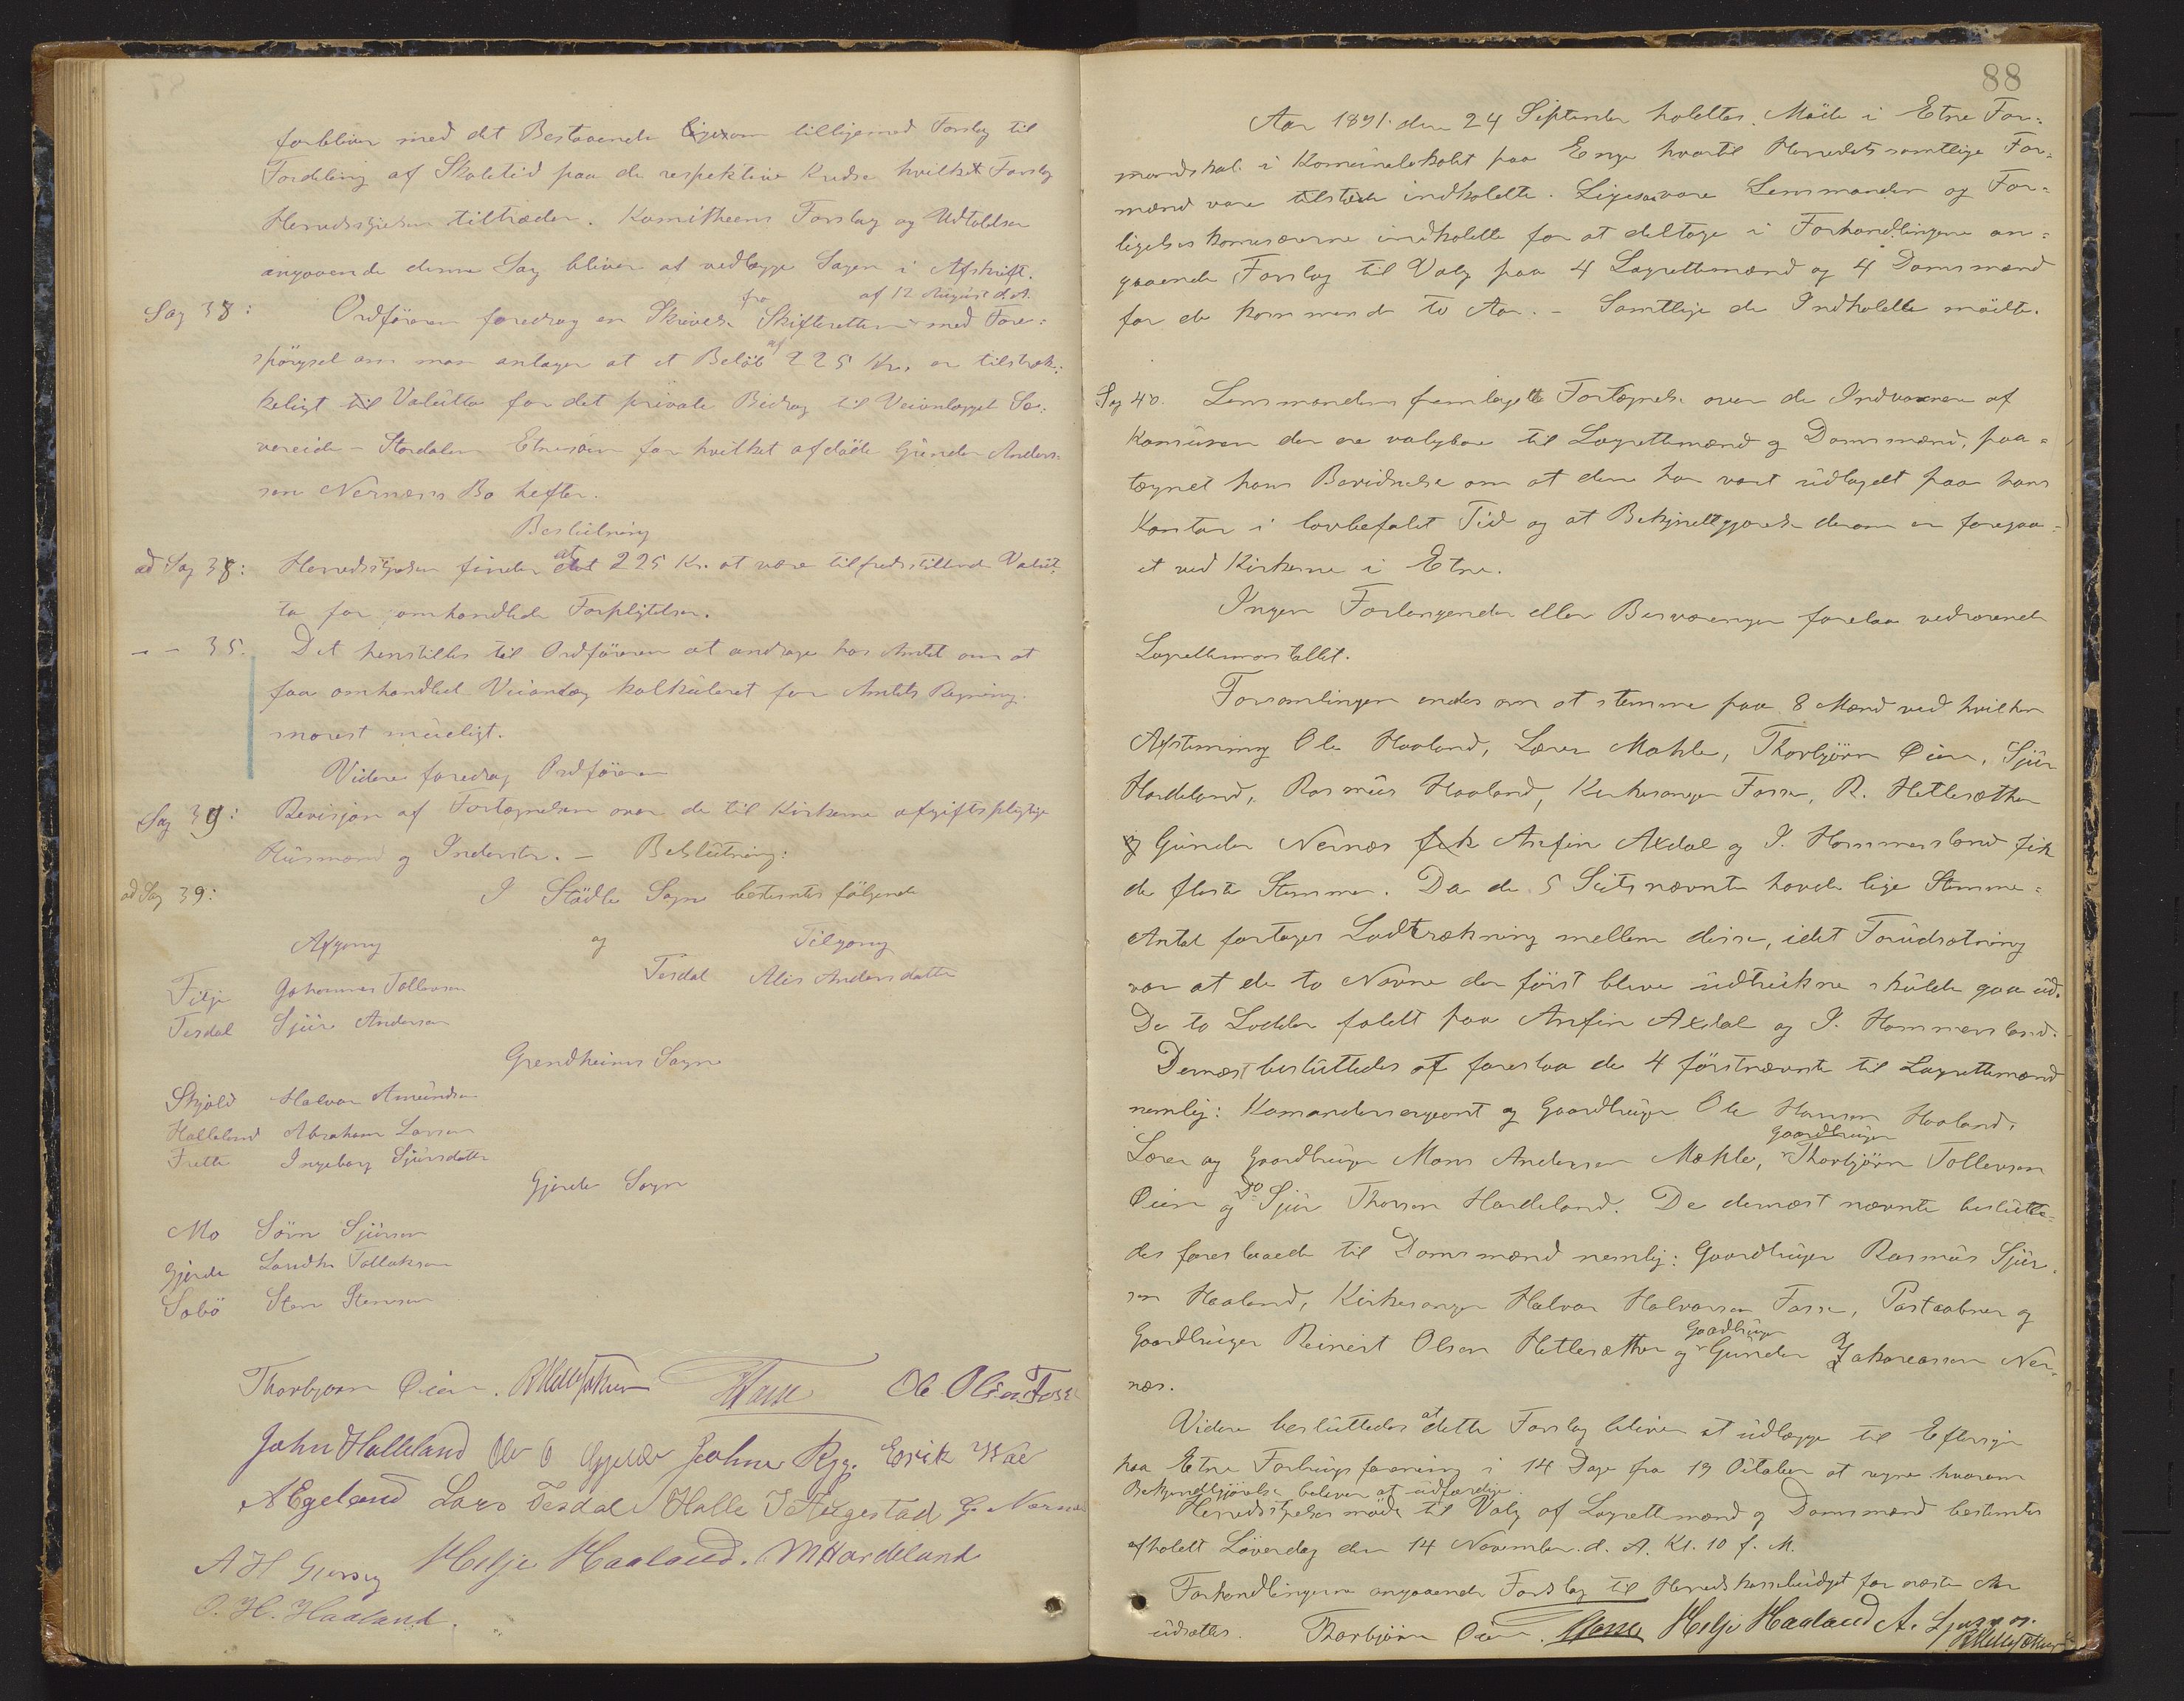 forbliver med det Bestaaende ligesom tilligemed Forslag til
Fordeling af Skoletid paa de respektive Kredse hvilket Forslag
Herredsstyrelsen tiltræder. Komitheens Forslag og Udtalelser
angaaende denne Sag bliver at vedlægge Sagen i Afskrift.
Sag 38: Ordføreren foredrog en Skrivelse fra Skifteretten af 12 August d. A. med Fore=
spørgsel om man antager at et Beløb af 225 Kr. er tilstræk=
keligt til Valutta for det private Bidrag til Veianlægget Sæ=
vareide - Stordalen Etnesøen for hvilket afdøde Gunder Anders=
sen Nernæs Bo hefter.
Beslutning
ad Sag 38: Herredsstyrelsen finder at 225 Kr. at være tilfredsstillende Valut=
ta for omhandlede Forpligtelser.
- - 35. Det henstilles til Ordføreren at andrage hos Amtet om at
faa omhandlede Veianlæg kalkuleret for Amtets Regning
snarest mueligt.
Videre foredrog Ordføreren
Sag 39: Revisjon af Fortegnelsen over de til Kirkerne afgiftspligtige
Husmænd og Inderster. - Beslutning:
ad Sag 39: I Stødle Sogn bestemtes følgende
Afgang og Tilgang
Filje Johannes Tollevsen Tesdal Alis Andersdatter
Tesdal Sjur Andersen
Grendheims Sogn
Skjold Halvor Amundsen
Halleland Abraham Larsen
Frette Ingeborg Sjursdatter
Gjerde Sogn
Mo Sørn Sjursen
Gjerde Tollaksen
Sæbø Sten Stensen
Thorbjørn Øien. R Hetlesæther Fosse Ole Olsen Fosse
John Halleland Ole O Gjelde Johnes Rygg. Erik Wae
A Egeland Lars Tesdal Halle J Haugestad G. Nernæs
A H Helje Haaland. M Hardeland
O. H. Haaland.
88
Aar 1891. den 24 September holdtes Møde i Etne For=
mandskab i Komunelokalet paa Enge hvortil Herredets samtlige For=
mænd vare tilstede indkaldte. Ligesaa vare Lensmanden og For=
ligelseskomisærerne indkaldte for at deltage i Forhandlingerne an=
gaaende Forslag til Valg paa 4 Lagrettemænd og 4 Domsmænd
for de kommende to Aar. - Samtlige de Indkaldte mødte.
Sag 40. Lensmanden fremlagde Fortegnelse over de Indvaanere af
Komunen der ere valgbare til Lagrettemænd og Domsmænd, paa=
tegnet hans Bevidnelse om at den har vært udlagdt paa hans
Kontor i lovbefalet Tid og at Bekjendtgjørelse derom er foregaa=
et ved Kirkerne i Etne.
Ingen Forlangender eller Besværinger forelaa vedrørende
Lagrettemandstallet.
Forsamlingen enedes om at stemme paa 8 Mænd ved hvilken
Afstemning Ole Haaland, Lærer Mæhle, Thorbjørn Øien, Sjur
Hardeland, Rasmus Haaland, Kirkesanger Fosse, R. Hetlesæther
og Gunder Nernæs fik Anfin Axdal og I. Hammersland fik
de fleste Stemmer. Da de 5 Sidstnævnte havde lige Stemme=
Antal fortages Lodtrækning mellem disse, idet Forudsætning
var at de to Navne der først bleve udtrukne skulde gaa ud.
De to Lodder faldt paa Anfin Axdal og I. Hammersland.
Dernæst besluttedes at foreslaa de 4 førstnævnte til Lagrettemænd
nemlig: Komandersergeant og Gaardbruger Ole Hansen Haaland.
Lærer og Gaardbruger Mons Andersen Mæhle, Gaardbruger Thorbjørn Tollevsen
Øien og Do Sjur Thorsen Hardeland. De dernæst nævnte beslutte=
des foreslaaede til Domsmænd nemlig: Gaardbruger Rasmus Sjur=
sen Haaland, Kirkesanger Halvor Halvorsen Fosse, Postaabner og
Gaardbruger Reinert Olsen Hetlesæther og Gaardbruger Gunder Zakariassen Ner=
næs.
Videre besluttedes at dette Forslag bliver at udlægge til Eftersyn
paa Etne Forbrugsforening i 14 Dage fra 19 Oktober at regne hvorom
Bekjendtgjørelse bliver at udfærdige.
Herredsstyrelsesmøde til Valg af Lagrettemænd og Domsmænd bestemtes
afholdt Løverdag den 14 November d. A. Kl. 10 f. M.
Forhandlingerne angaaende Forslag til Herredskassebudget for næste Aar
udsættes. Thorbjørn Øien. Fosse Helje Haaland A.
R Hetlesæther